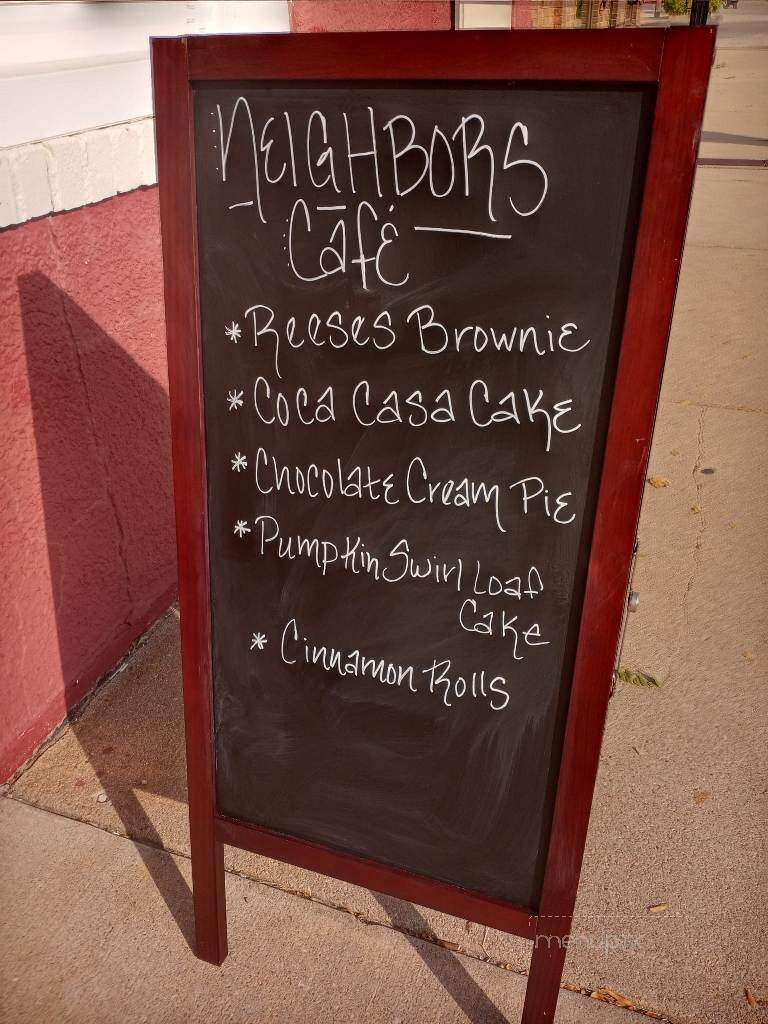 NEIGHBORS
Café
* Reeses Brownie
* Coca Casa Cake
* Chocolate Cream Pie
* Pumpkin Swirl Loaf
Cake
* Cinnamon Rolls